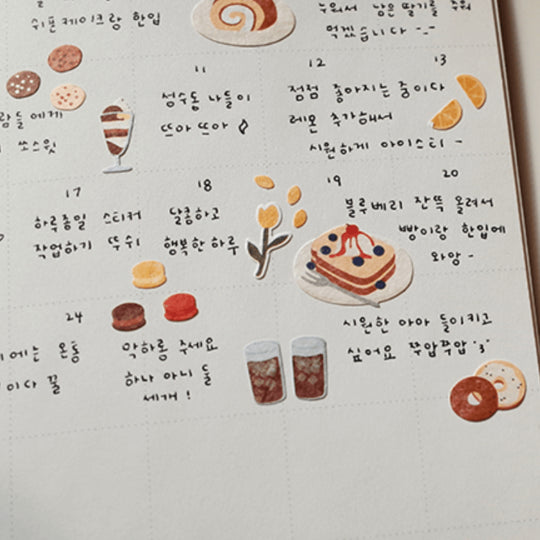 쉬폰케이크랑 한입
누워서 남은 딸기를 주워
먹겠습니다 -.-
11
성수동 나들이
뜨아 뜨아 ♪
12
13
점점 좋아지는 중이다
레몬 추가해서
시원하게 아이스티 ~
람들에게
쏘스윗
17
하루종일 스티커
작업하기 뚜쉬
18
달콤하고
행복한 하루
19
20
블루베리 잔뜩 올려서
빵이랑 한입에
와앙 ~
24
에는 온통
이다 꿀
막하롱 주세요
하나 아니 둘
세개 !
시원한 아아 들이키고
싶어요 쭈압쭈압 '3'